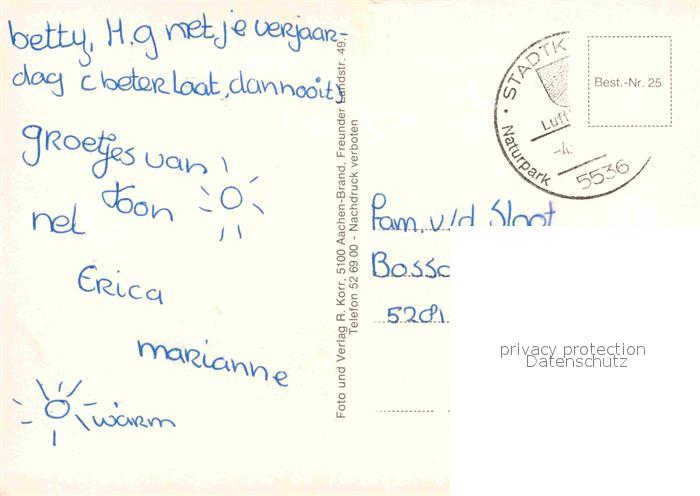 betty, H.g met je verjaar-
dag (beter laat, dan nooit)
groetjes van
toon
nel
Erica
marianne
warm
Foto und Verlag R. Korr, 5100 Aachen-Brand, Freunder Landstr. 49,
Telefon 52 69 00 - Nachdruck verboten
STADTK
Luft
-4.
Naturpark
5536
Best.-Nr. 25
Fam. v/d Sloot
Bossc
5281
privacy protection
Datenschutz